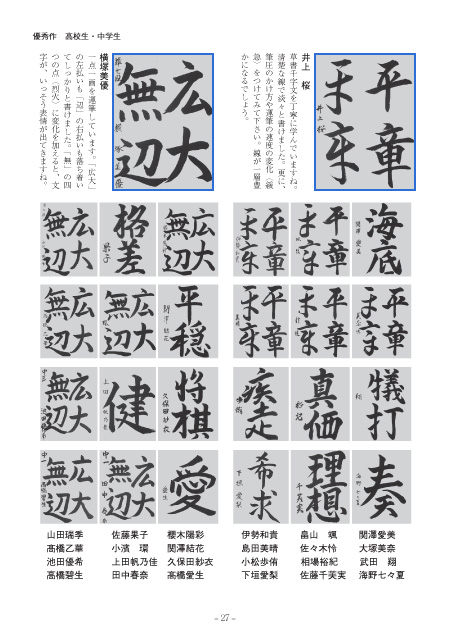 優秀作　高校生・中学生
井上　桜
草書千字文を丁寧に学んでいますね。
清楚な線で淡々と書けました。更に、
筆圧のかけ方や運筆の速度の変化（緩
急）をつけてみて下さい。線が一層豊
かになるでしょう。
平章
井上桜
広大
無辺
横塚美優
一点一画を運筆しています。「広大」
の左払いも「辺」の右払いも落ち着い
てしっかりと書けました。「無」の四
つの点（烈火）に変化を加えると、文
字が、いっそう表情が出てきますね。
海底
平章
平章
広大
無辺
格差
広大
無辺
平章
平章
平章
平穏
広大
無辺
広大
無辺
犠打
真価
疾走
将棋
健
広大
無辺
奏
理想
希求
愛
広大
無辺
広大
無辺
山田瑞季　佐藤果子　櫻木陽彩　伊勢和貴　畠山　颯　関澤愛美
髙橋乙華　小濱　環　関澤結花　島田美晴　佐々木怜　大塚美奈
池田優希　上田帆乃佳　久保田紗衣　小松歩侑　相場裕紀　武田　翔
髙橋碧生　田中春奈　髙橋愛生　下垣愛梨　佐藤千芙実　海野七々夏
－27－